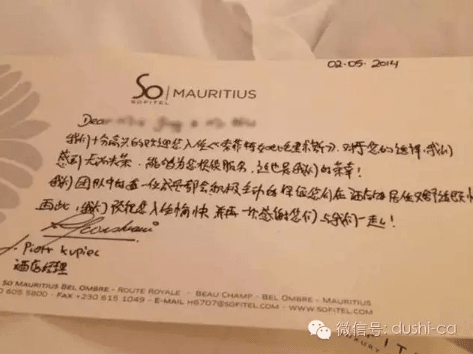 02-05-2014
SO | MAURITIUS
SOFITEL
Dear
我们十分高兴的欢迎您入住 索菲特 毛里求斯 对于您的选择,我们
感到无 荣,能够为您提供服务,这也是我们的荣幸!
我们团队中的每一位成员都会积极主动的保证您们在酒店的居住
再此,我们预祝您入住愉快 再一次感谢您们与我们一起!
Piotr Kupiec
酒店经理
SO MAURITIUS BEL OMBRE - ROUTE ROYALE - BEAU CHAMP - BEL OMBRE - MAURITIUS
0 605 5800 - FAX +230 615 1049 - E-MAIL H6707@SOFITEL.COM - WWW.SOFITEL.COM
微信号: dushi-ca